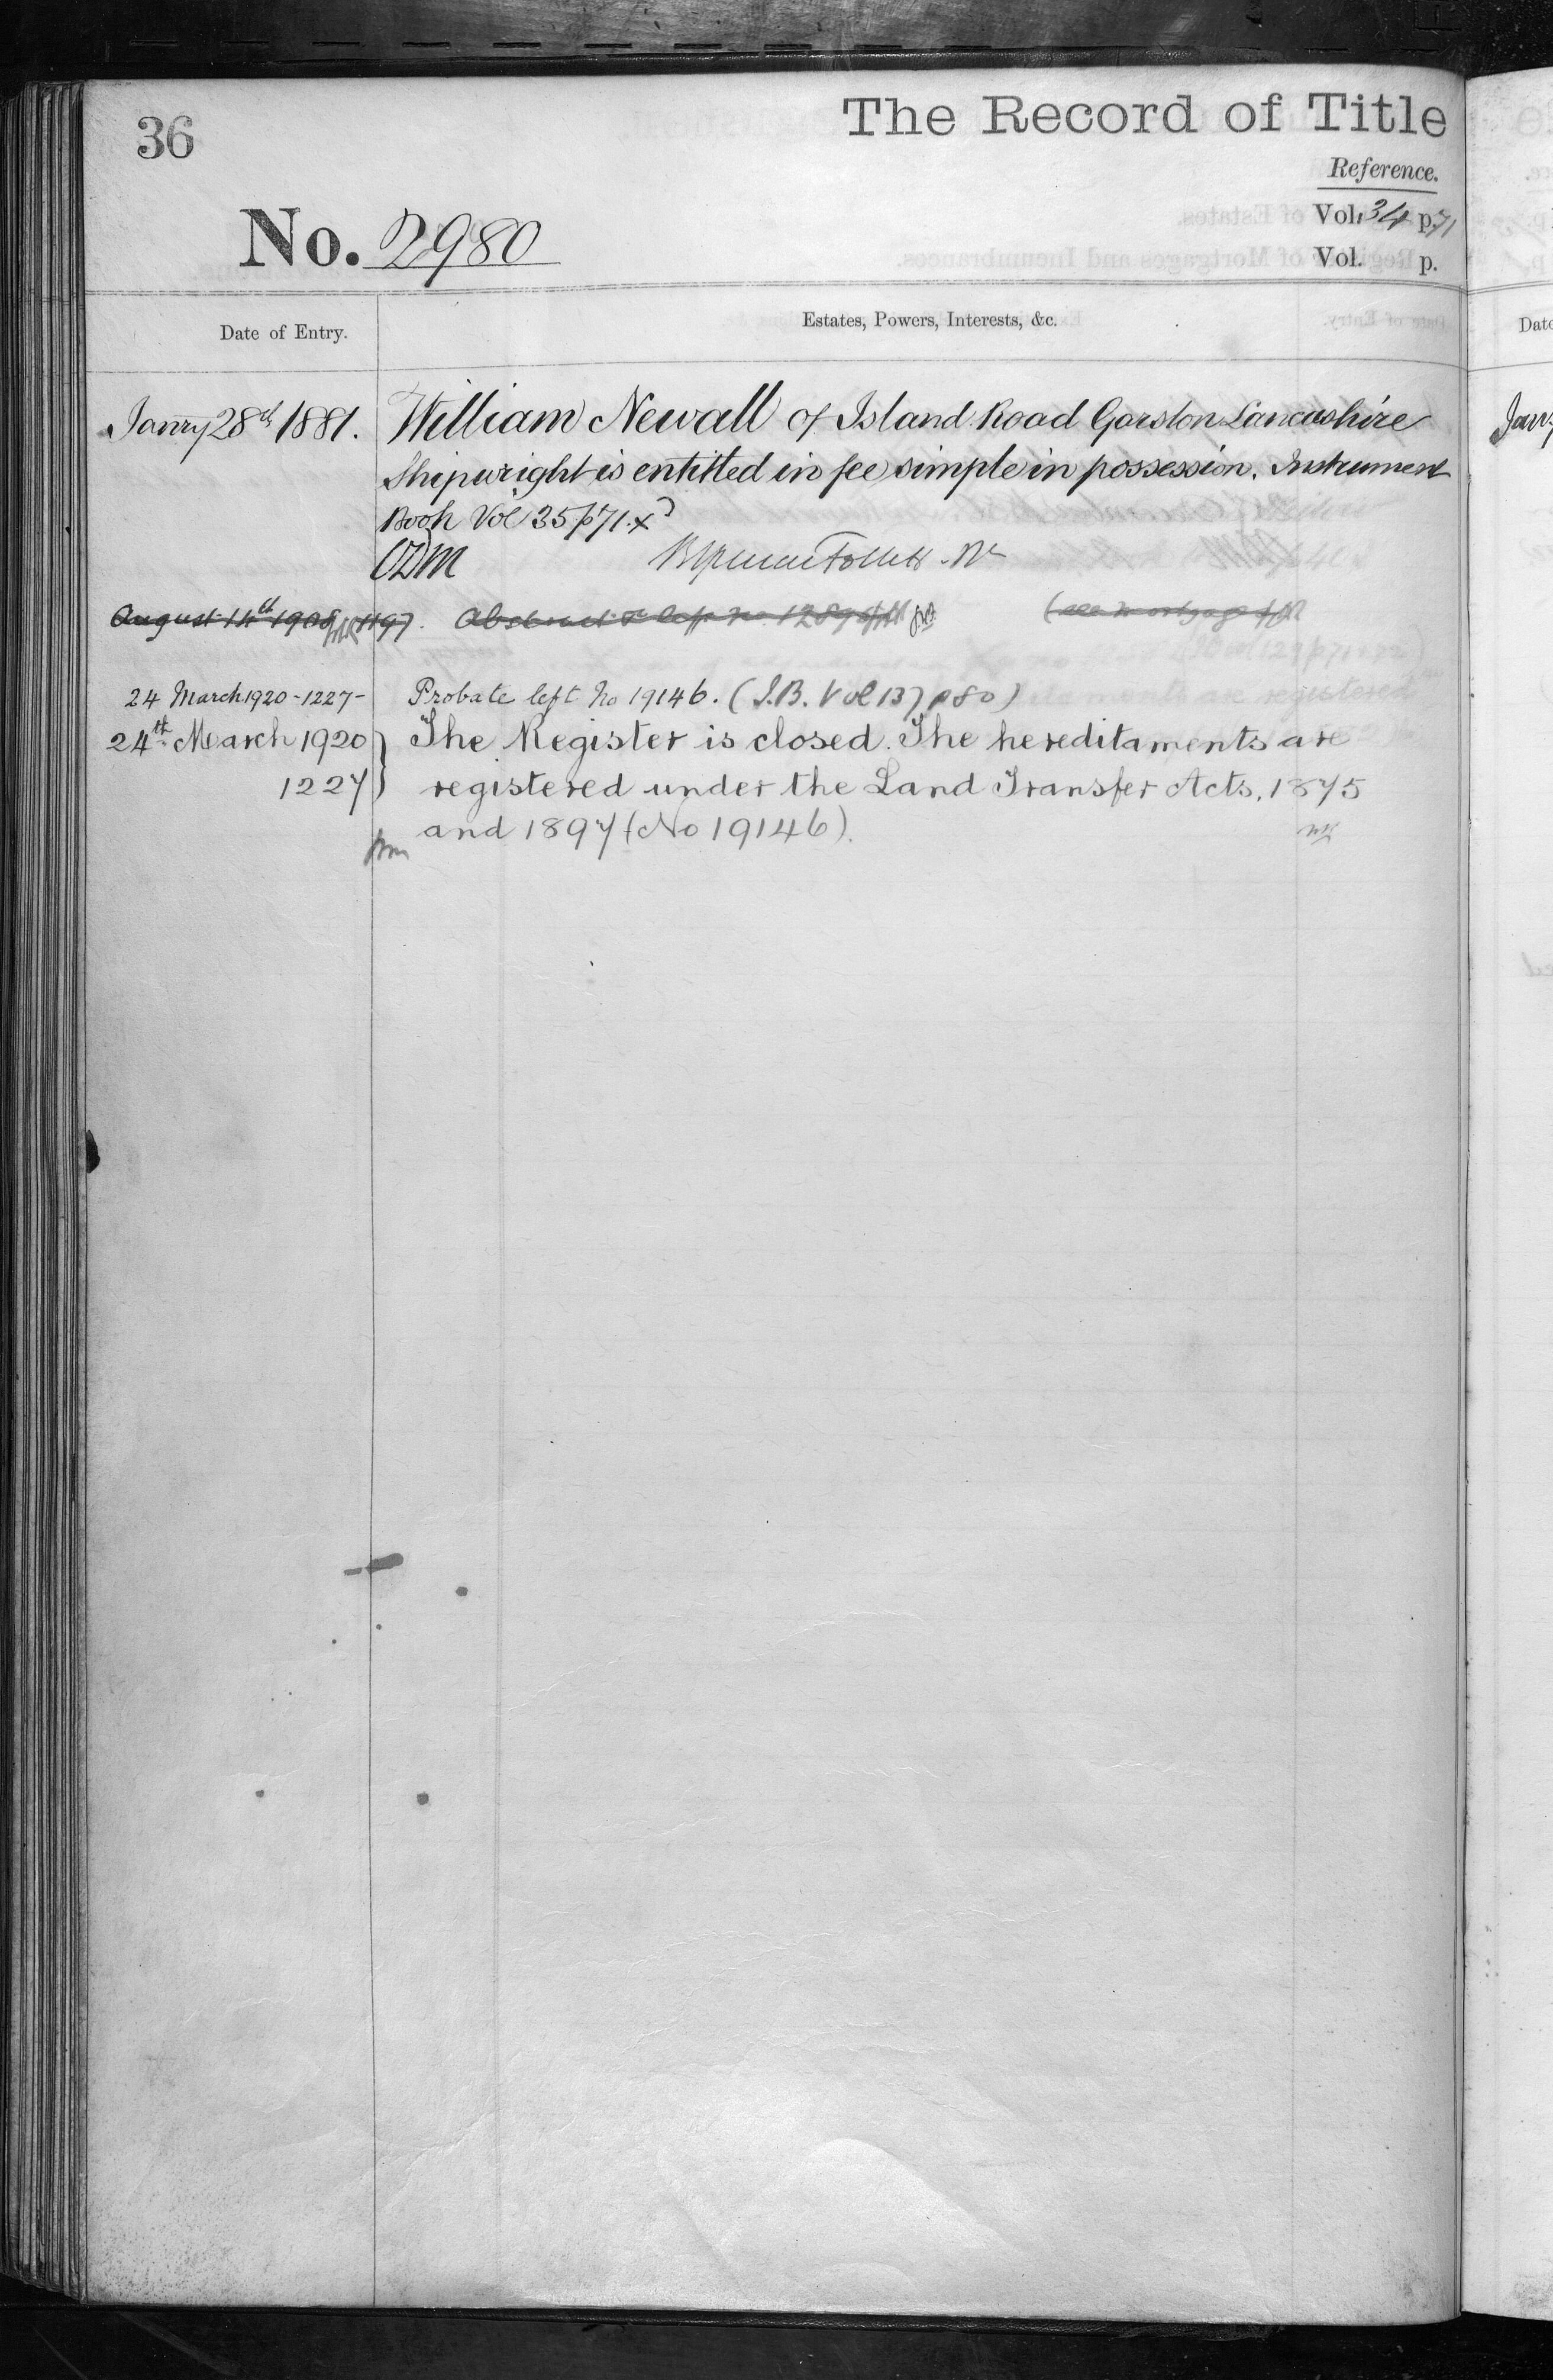 36
The Record of Title
Reference.
No. 2980
Vol. 34 p. 71
Vol. p.
Date of Entry.
Estates, Powers, Interests, &c.
Date
Janry 28th 1881. William Newall of Island Road Garston Lancashire
Shipwright is entitled in fee simple in possession. Instrument
Book Vol 35 p 71. x
ODM
August 14th 1908 1197. Abstract &c left No 12896 (see mortgage
24 March 1920 - 1227 - Probate left No 19146. (I.B. Vol 137 p 80)
24th March 1920 The Register is closed. The hereditaments are
1227 registered under the Land Transfer Acts, 1875
and 1897 (No 19146).